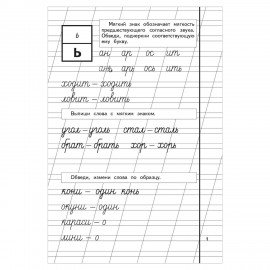 ь
Ь
Мягкий знак обозначает мягкость
предшествующего согласного звука.
Обведи, подчеркни соответствующую
ему букву.
ан ар ос ит
ань арь ось ить
ходит – ходить
ловит – ловить
Выпиши слова с мягким знаком.
угал – угаль стал – сталь
брат – брать хор – хорь
Обведи, измени слова по образцу.
кони – один конь
окуни – один
караси – о
лини – о
1